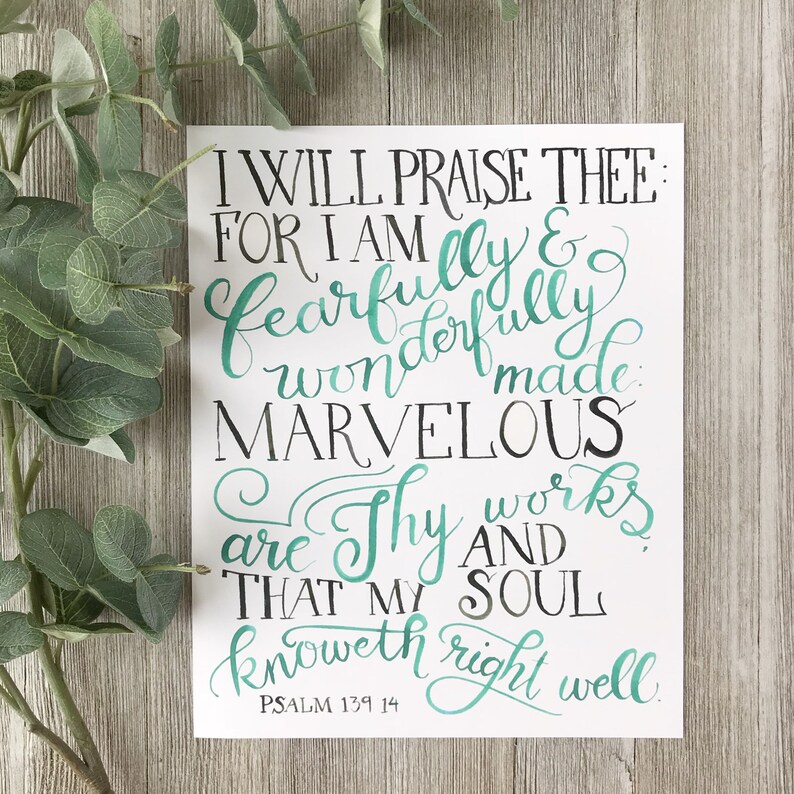 I WILL PRAISE THEE:
FOR I AM fearfully &
wonderfully made:
MARVELOUS
are Thy works,
AND
THAT MY SOUL
knoweth right well.
PSALM 139 14